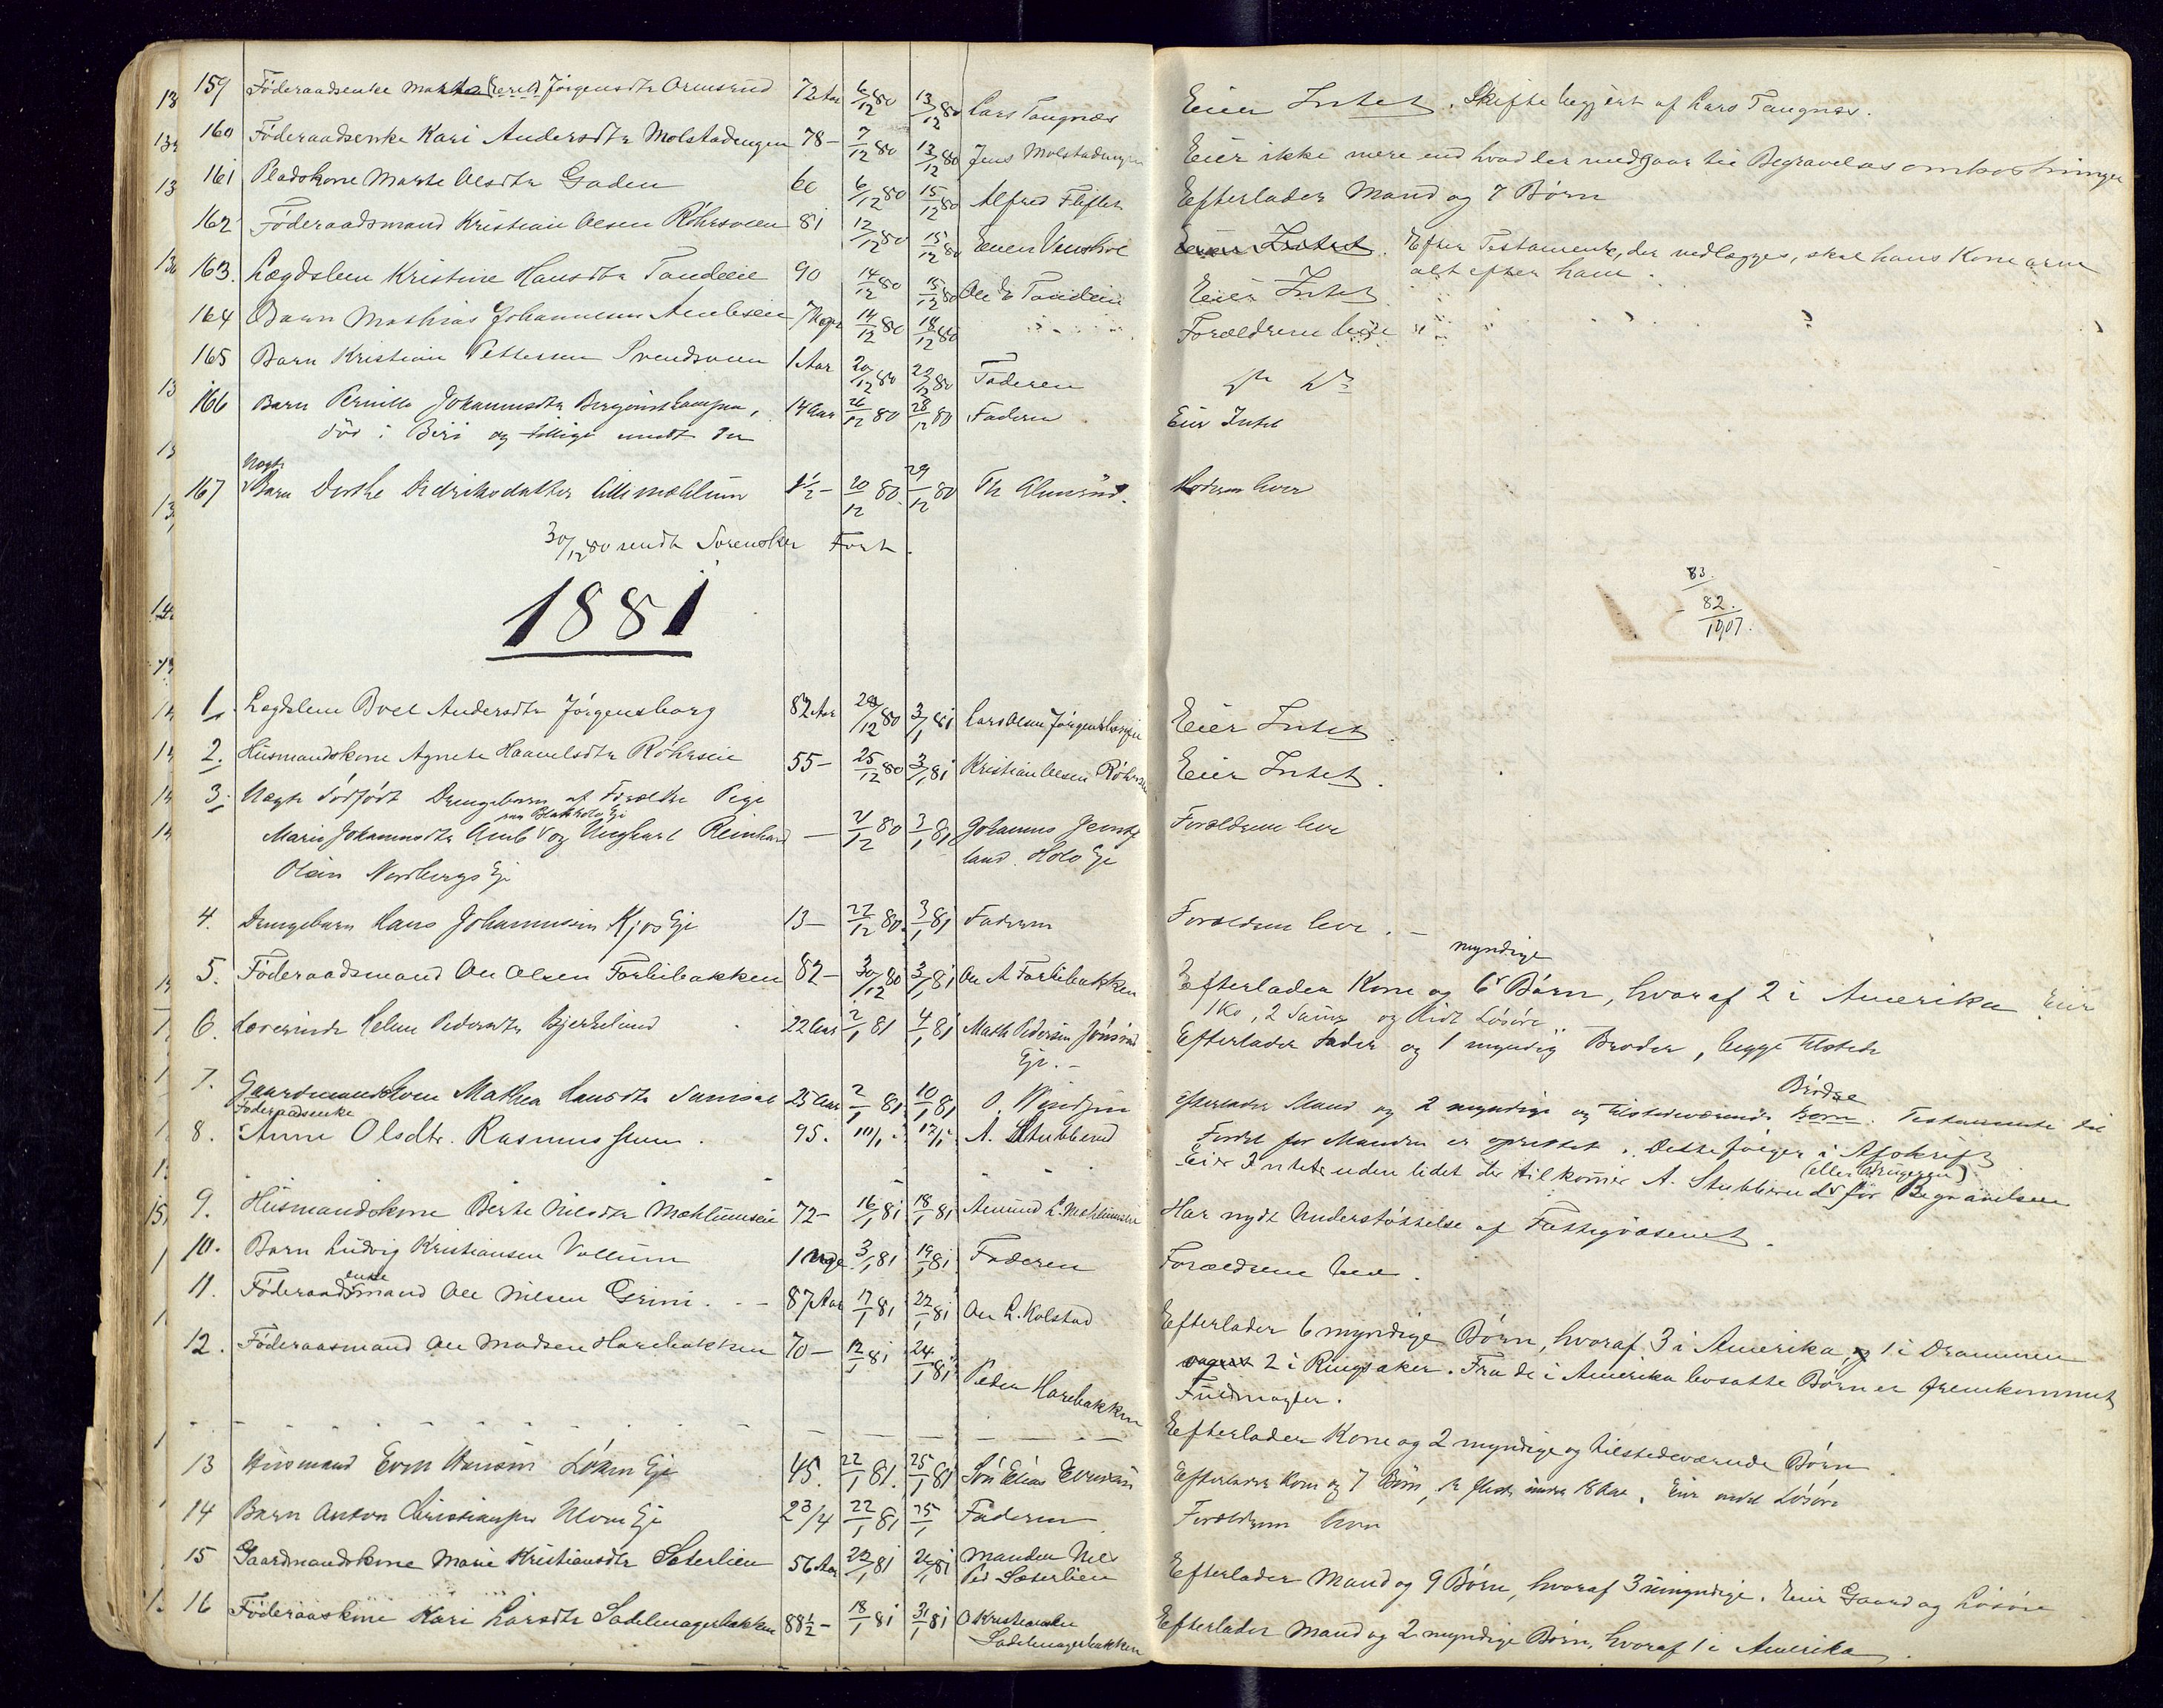 159 Føderaadsenke Marthe Berit Jörgensdtr Ormsrud 72 Aar 6/12 80 13/12 80 Lars Tangnæs Eier Intet. Skifte begjert af Lars Tangnæs.
160 Føderaadsenke Kari Andersdtr Molstadengen 78 - 7/12 80 13/12 80 Jens Molstadengen Eier ikke mere end hvad der medgaar til Begravelsesomkostninger
161 Pladskone Marte Olsdtr Gaden 60 6/12 80 15/12 80 Alfred Efterlader Mand og 7 Børn
162 Føderaadsmand Kristian Olsen Röhrsveen 81 12/12 80 15/12 80 Even Eier Intet. Efter Testamente, der vedlægges, skal hans Kone arve
alt efter ham.
163. Lægdslem Kristine Hansdtr Tandeie 90 14/12 80 15/12 80 Ole E Tandeie Eier Intet
164 Barn Mathias Johannesen 14/12 80 18/12 80 Forældrene leve
165 Barn Kristian Pettersen Svendsveen 1 Aar 20/12 80 22/12 80 Faderen
166 Barn Pernille Johannesdtr 14 Aar 26/12 80 28/12 80 Faderen Eier Intet
død i Biri og
167 Uægte Barn Dorthe Didriksdatter Lillemæhlum 1½ - 20/12 80. 29/12 80 Th Moderen lever
30/12 80 sendt Sorensker Fort.
1881
83.
82.
1907.
1. Lægdslem Boel Andersdtr Jörgensborg 82 Aar 29/12 80 3/1 81 Lars Olsen Eier Intet.
2. Husmandskone Agnete Haavelsdtr Röhrseie 55 - 25/12 80 3/1 81 Kristian Olsen Eier Intet.
3. Uægte dödfödt Drengebarn af Forældre Pige
Marie Johannesdtr og Ungkarl Reinhard — 21/12 80 3/1 81 Johannes Forældrene leve
Olsen Norbergs Eje
land. Hols Eje
4. Drengebarn Hans Johannesen Kjos Eje 13 - 22/12 80. 3/1 81 Faderen Forældrene leve. -
5. Föderaadsmand Ole Olsen Forlibakken 82 - 30/12 80 3/1 81 Ole A Forlibakken Efterlader Kone og 6 myndige Børn, hvoraf 2 i Amerika Eier
1 Ko, 2 Sauer og lidt Løsøre
6. Lærerinde Helene Pedersdtr Bjerkelund 22 Aar 2/1 81 4/1 81 Math Pedersen Jönsrud Efterlader Fader og 1 myndig Broder, begge tilstede
Eje. -
7. Gaardmandskone Mathea Hansdtr 25 Aar 2/1 81 10/1 81 O. Efterlader Mand og 2 myndige og tilstedeværende Børn Brödre. Testamente til
Fordel for Manden er oprettet. Dette følger i Afskrift
8. Føderaadsenke Anne Olsdtr. Rasmussen. 95. 10/1 17/1 A. Stubberud Eier Intet uden lidet der tilkommer A. Stubberud for Begravelsen
9. Husmandskone Berte Nilsdtr Mæhlumseie 72 - 16/1 81 18/1 81 Amund L. Mæhlumseie Har nydt Understöttelse af Fattigvæsenet.
10. Barn Ludvig Kristiansen Vollum 1 Uge 3/1 81 19/1 81 Faderen Forældrene leve.
11. Føderaadsmand enke Ole Nilsen Grini. - - 87 Aar 17/1 81 22/1 81 Ole L. Kolstad Efterlader 6 myndige Børn, hvoraf 3 i Amerika, og 1 i Drammen
2 i Ringsaker. Fra de i Amerika bosatte Børn er fremkommet
Fuldmagter.
12. Føderaasmand Ole Madsen Harebakken 70 - 12/1 81 24/1 81 Peder Harebakken Efterlader Kone og 2 myndige og tilstedeværende Børn.
13 Husmand Even Hansen Eje 45. 22/1 81. 25/1 81 Sön Elias Evensen Efterlader Kone og 7 Børn, de fleste under 18 Aar. Eier endel Løsøre
14 Barn Anton Christiansen Eje 2¾ 22/1 81 25/1 Faderen Forældrene leve
15 Gaardmandskone Marie Kristiansdtr Sæterlien 56 Aar 22/1 81 26/1 81 Manden Nils Efterlader Mand og 9 Børn, hvoraf 3 umyndige. Eier Gaard og Løsøre
Ped Sæterlien
16 Føderaaskone Kari Larsdtr Sadelmagerbakken 88½ - 18/1 81 31/1 81 O Kristiansen Efterlader Mand og 2 myndige Børn, hvoraf 1 i Amerika.
Sadelmagerbakken